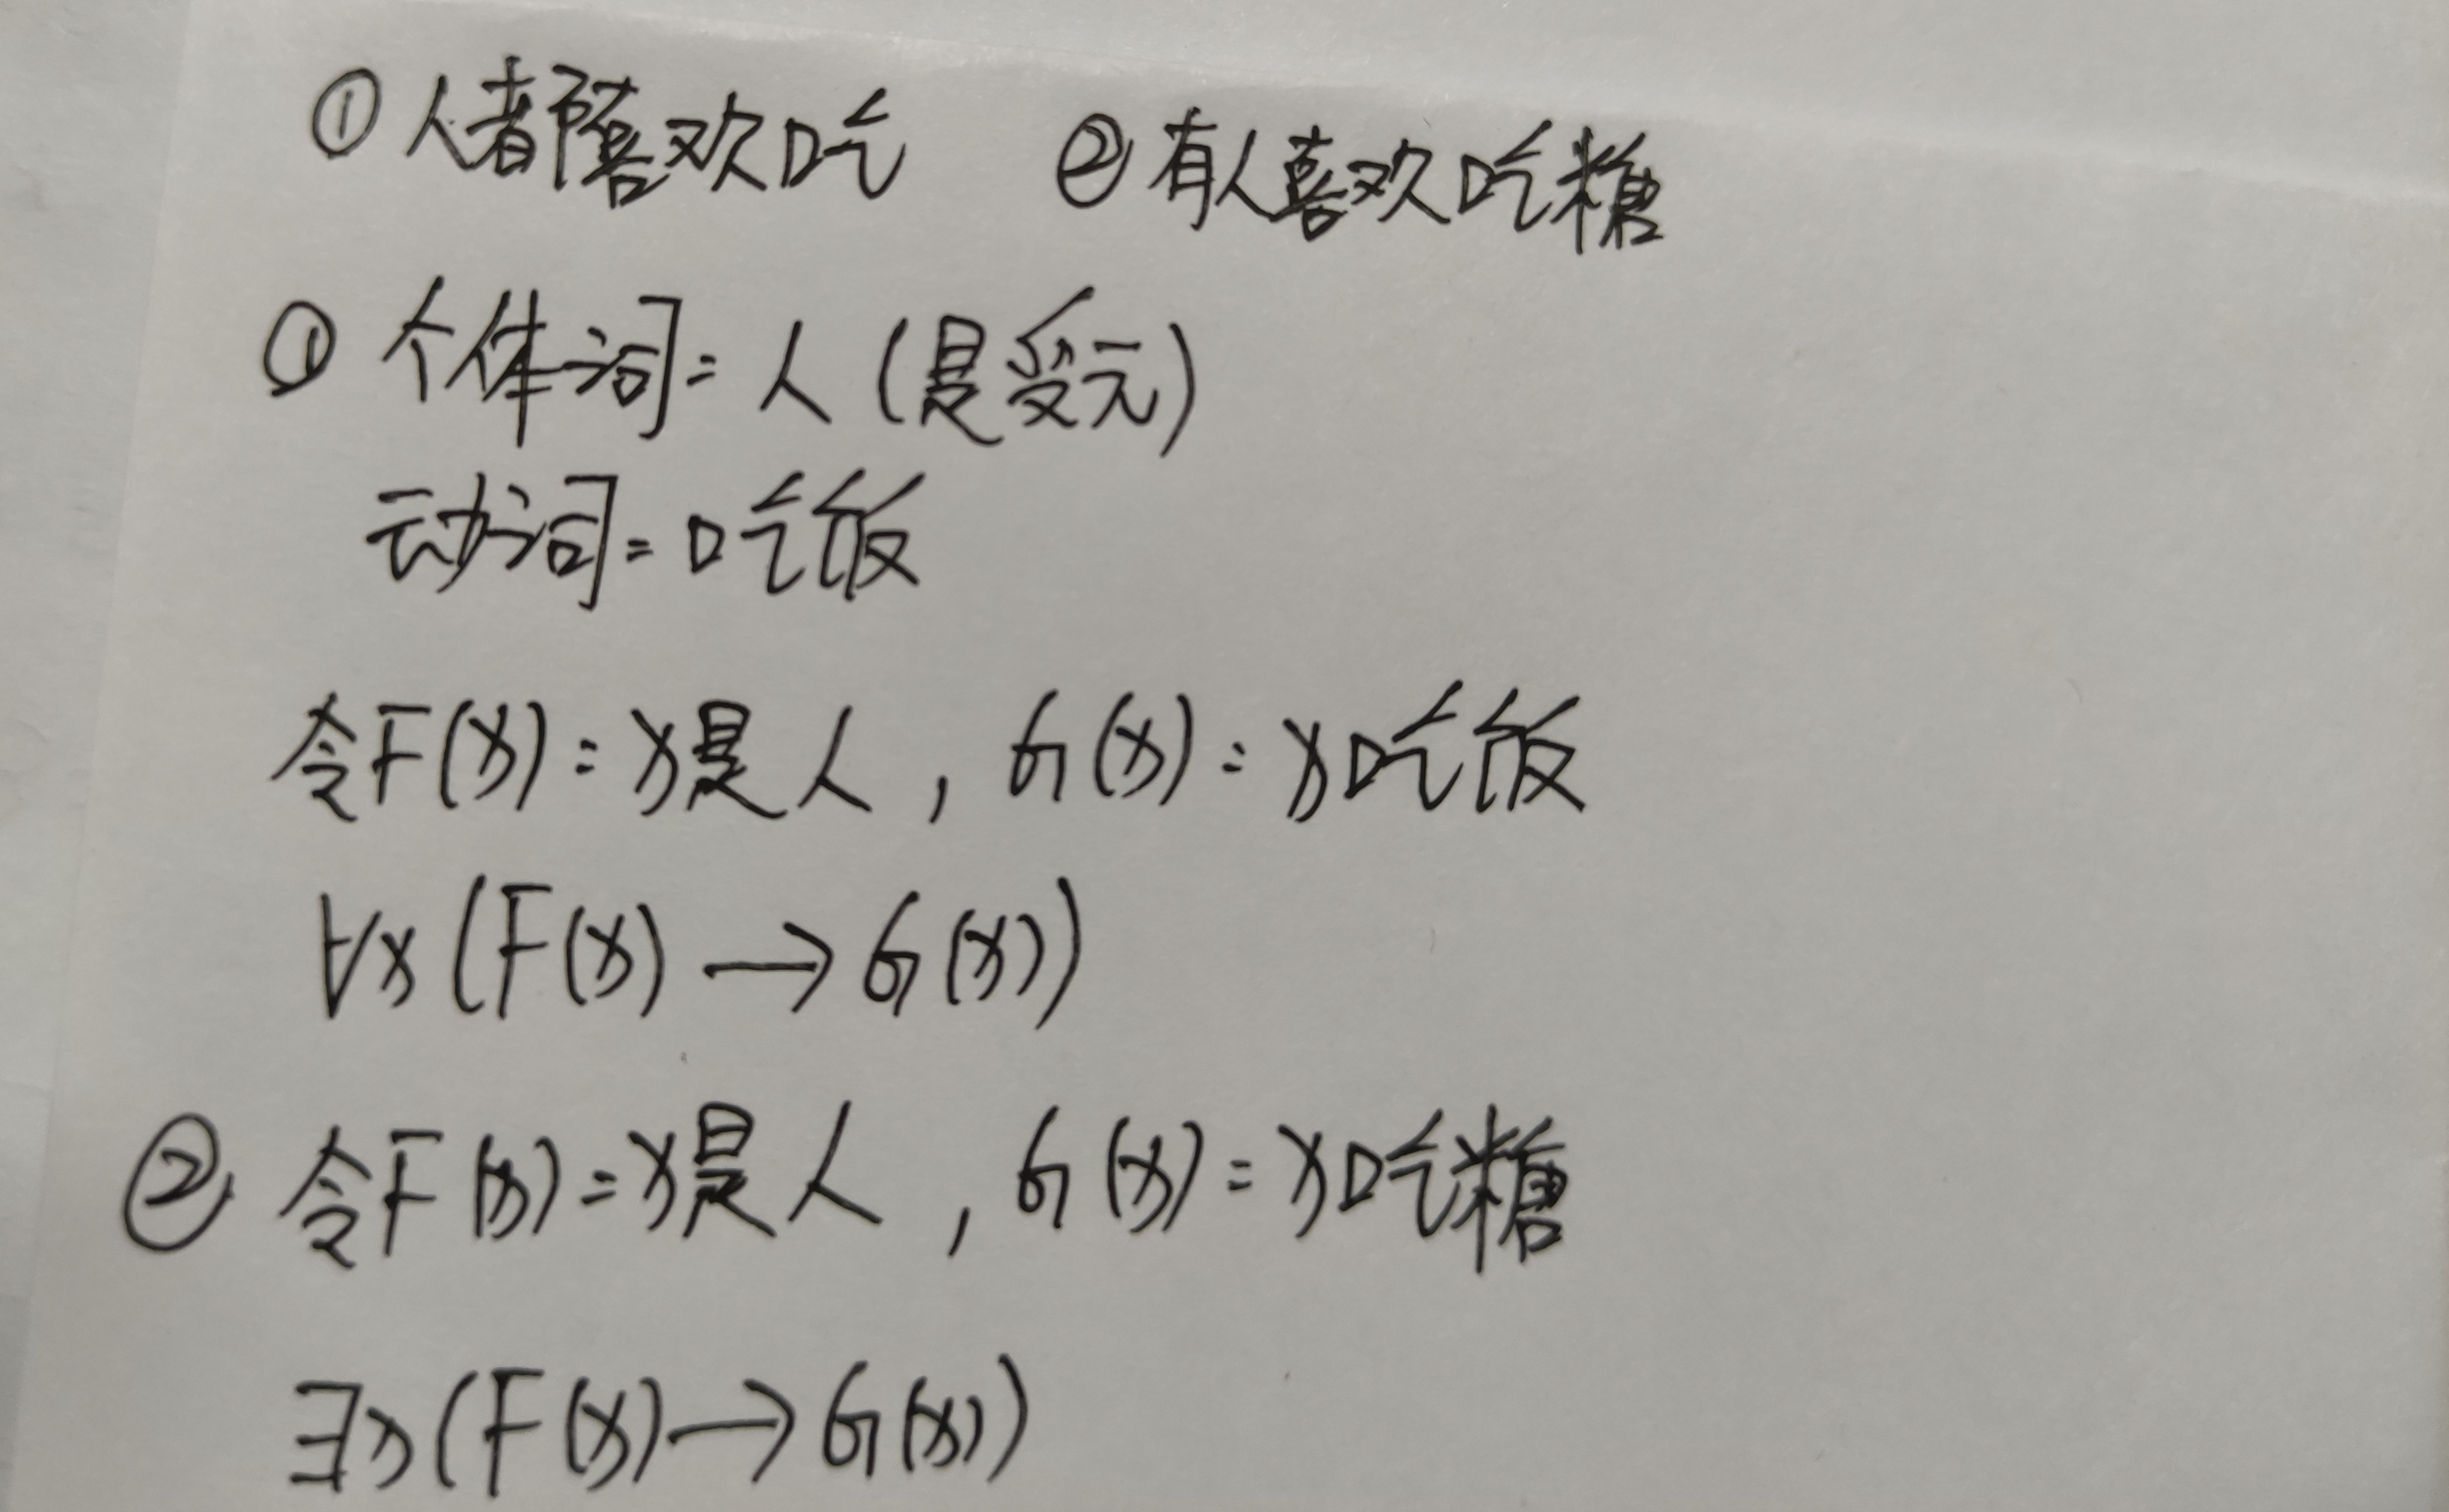 ①人都喜欢吃 ②有人喜欢吃糖
① 个体词=人(是变元)
动词=吃饭
令F(x)=x是人,G(x)=x吃饭
∀x(F(x)→G(x))
② 令F(x)=x是人,G(x)=x吃糖
∃x(F(x)→G(x))